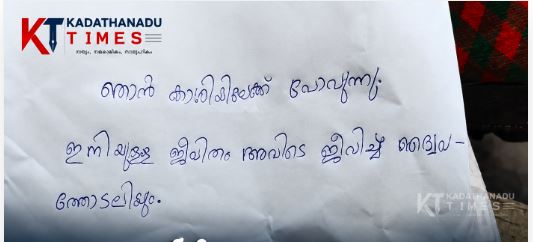 KT KADATHANADU
TIMES
സത്യം, സമകാലികം, സാമൂഹികം
ഞാൻ കാശിയിലേക്ക് പോവുന്നു.
ഇനിയുള്ള ജീവിതം അവിടെ ജീവിച്ച് ദൈവ-
ത്തോടലിയും.
KT KADATHANADU
TIMES